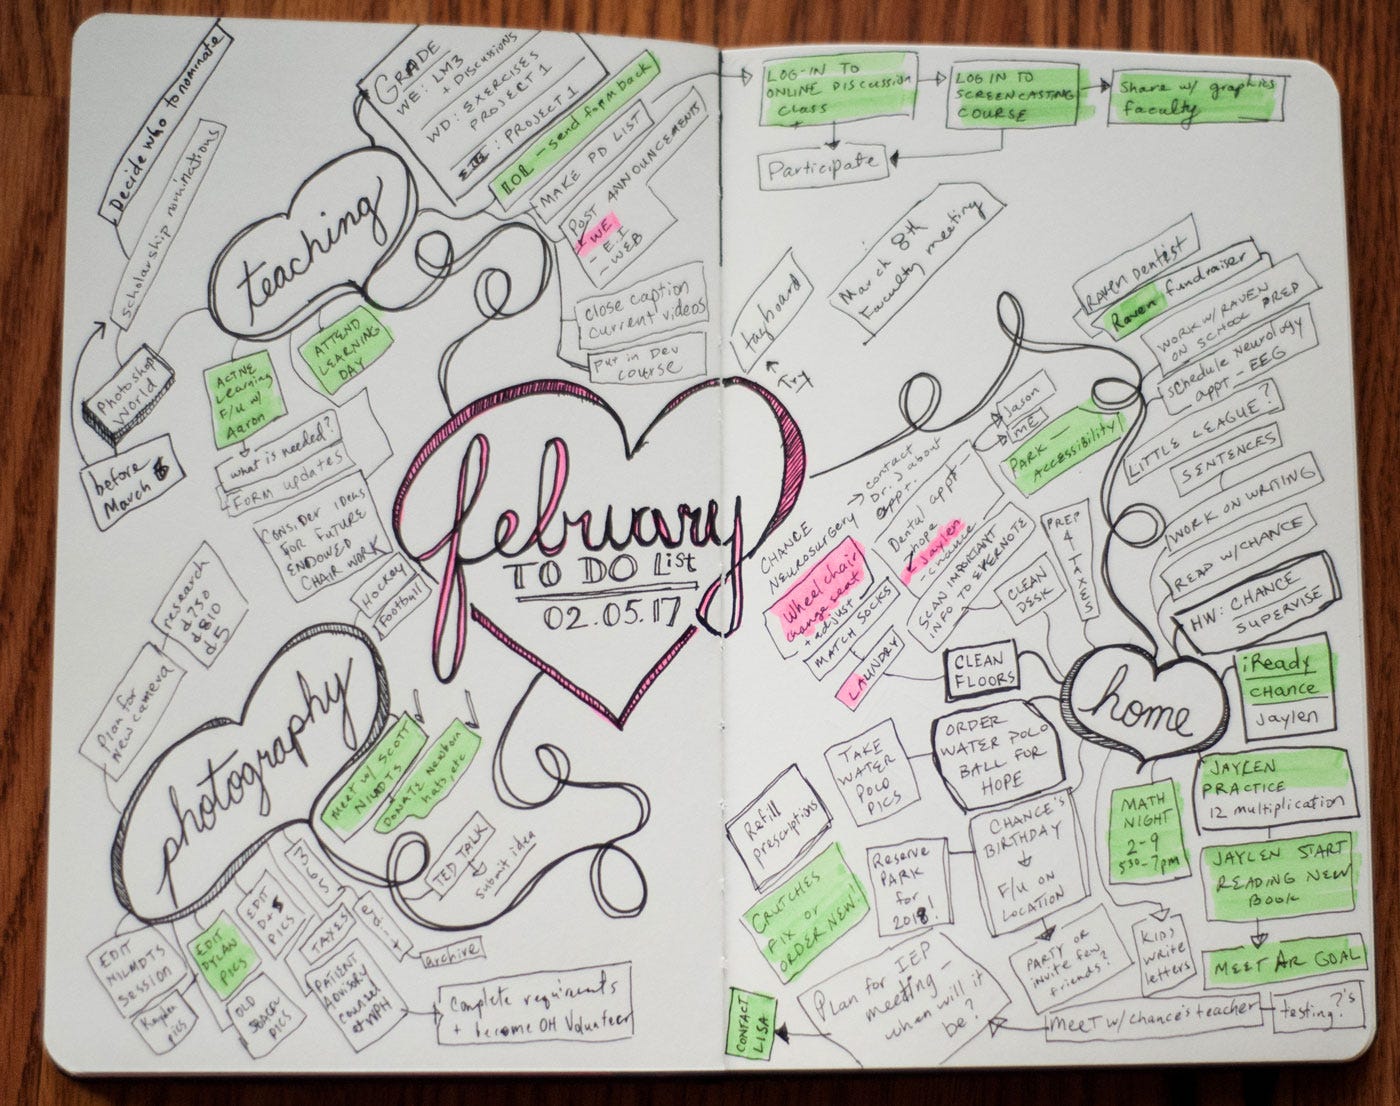 Decide who to nominate
scholarship nominations
Photoshop
World
before
March
teaching
GRADE
WE: LM3
+ Discussions
WD: EXERCISES
PROJECT 1
: PROJECT 1
LOR - send form back
MAKE PD LIST
POST ANNOUNCEMENTS
WE
- E.I
- WEB
close caption
current videos
Put in Dev
course
ACTIVE
Learning
F/U w/
Aaron
ATTEND
LEARNING
DAY
what is needed?
FORM updates
Consider ideas
FOR FUTURE
ENDOWED
CHAIR WORK
Hockey
Football
february
TO DO List
02.05.17
research
d750
d810
d5
Plan for
new camera
photography
meet w/ SCOTT
NILMDTS
DONATE Newborn
hats, etc
TED TALK
submit idea
365
edit
archive
TAXES
EDIT
D+S
PICS
EDIT
DYLAN
PICS
EDIT
NILMDTS
SESSION
Kayden
pics
OLD
PICS
PATIENT
Advisory
council
Complete requirements
+ become OH Volunteer
LOG-IN TO
ONLINE DISCUSSION
CLASS
LOG IN TO
SCREENCASTING
COURSE
Share w/ graphics
faculty
Participate
March 8th
Faculty meeting
tagboard
Try
Raven Dentist
Raven fundraiser
WORK W/ RAVEN
ON SCHOOL PREP
schedule neurology
appt - EEG
LITTLE LEAGUE?
SENTENCES
WORK ON WRITING
READ W/ CHANCE
HW: CHANCE
SUPERVISE
Jason
ME
PARK -
ACCESSIBILITY
contact
Dr. J about
appt.
CHANCE
NEUROSURGERY
Dental appt
- hope
- Jaylen
- chance
Wheel chair
change seat
+ adjust
MATCH SOCKS
LAUNDRY
SCAN IMPORTANT
INFO TO EVERNOTE
CLEAN
DESK
PREP
4
TAXES
CLEAN
FLOORS
home
iReady
CHANCE
Jaylen
ORDER
WATER POLO
BALL FOR
HOPE
TAKE
WATER
POLO
PICS
JAYLEN
PRACTICE
12 multiplication
JAYLEN START
READING NEW
BOOK
MEET AR GOAL
MATH
NIGHT
2-9
530-7pm
CHANCE'S
BIRTHDAY
F/U ON
LOCATION
Reserve
PARK
for
2018!
PARTY OR
invite few
friends?
KIDS
write
letters
Refill
prescriptions
CRUTCHES
FIX or
ORDER NEW!
Plan for IEP
meeting -
when will it
be?
CONTACT
LISA
MEET W/ Chance's teacher
testing?'s